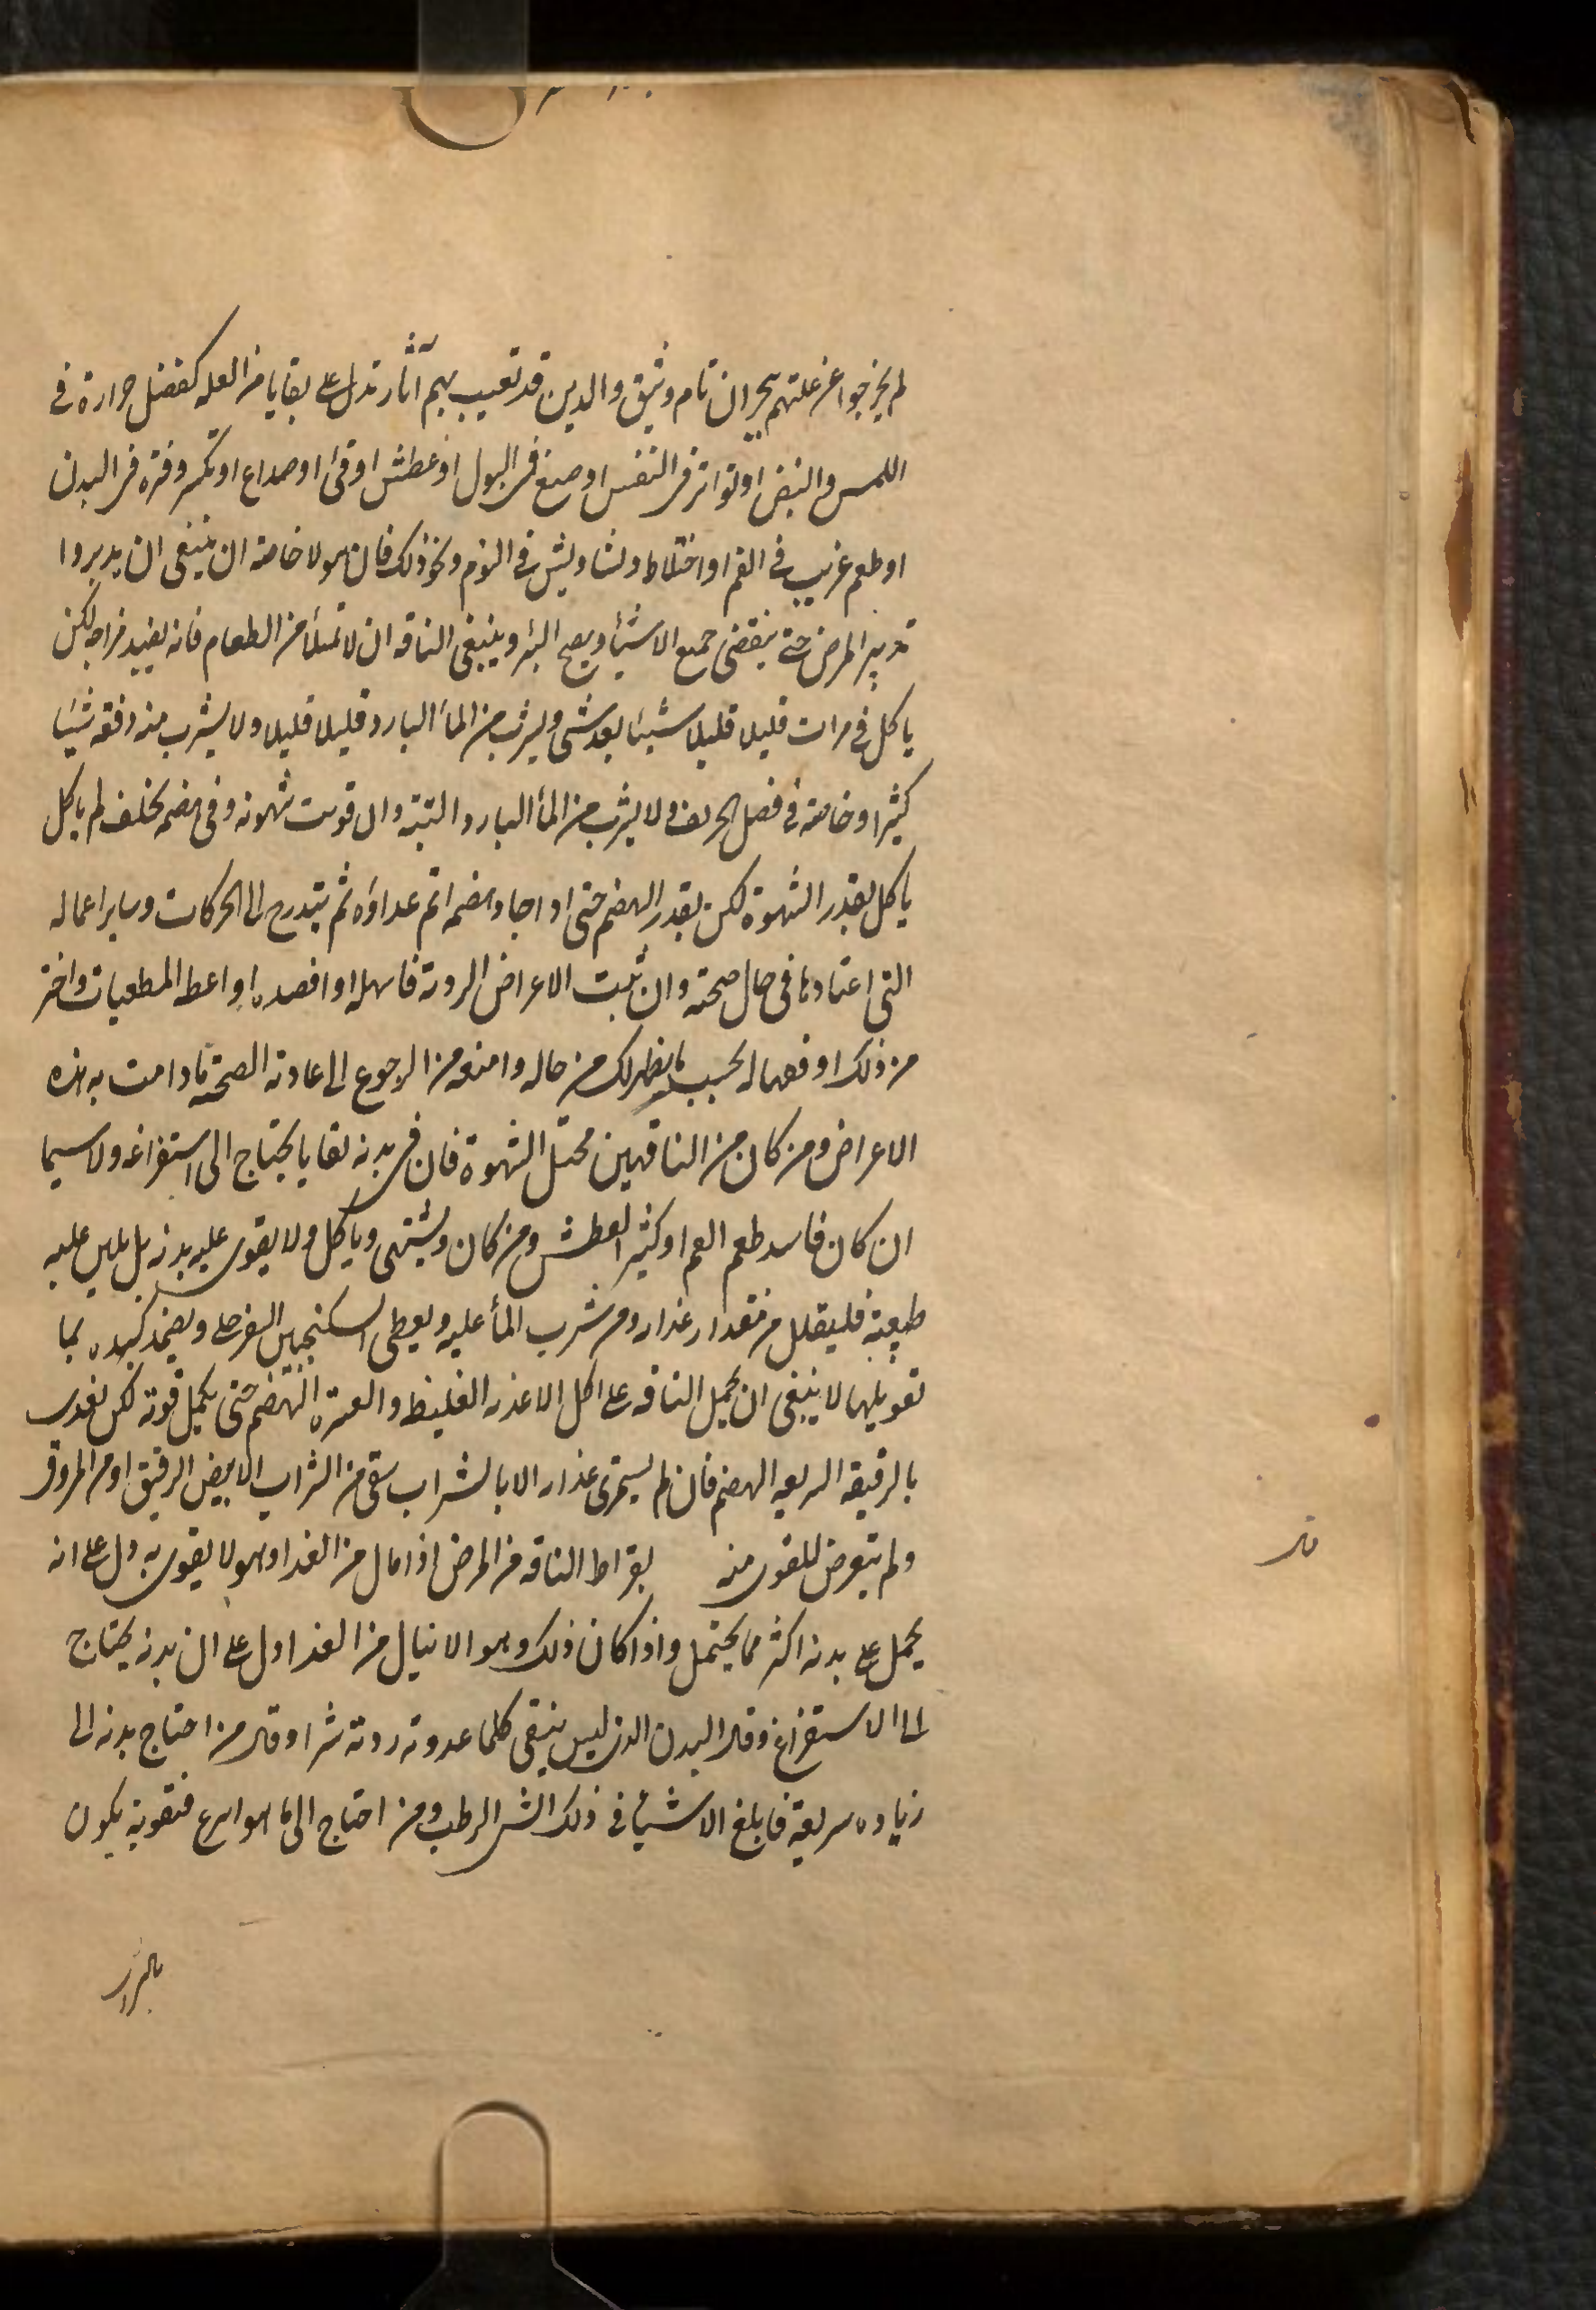 لم يخرجوا عن علتهم ببحران تام وثيق والدين قد تعيب بهم آثار تدل على بقايا من العله كفضل حرارة في
اللمس والنبض او تواتر في النفس او صبغ في البول او عطش او قئ او صداع او تكسر وفترة في البدن
او طعم غريب في الفم او اختلاط وتشاويش في النوم ونحو ذلك فان هولا خاصة ان ينبغي ان يدبروا
تدبير المرض حتى ينقضي جميع الاشيأ ويصح البرٔ وينبغي الناقه ان لا تمتلئ من الطعام فانه يفيد مراجه لكن
ياكل في مرات قليلا قليلا شيئا بعد شي ويشرب من المأ البارد قليلا قليلا ولا يشرب منه دفقه شيئا
كثيرا وخاصة في فصل الخريف ولا يشرب من المأ البارد البتة وان قويت شهوته وفي هضمه تخلف لم ياكل
ياكل بقدر الشهوة لكن بقدر الهضم حتى اداجاد هضمه اتم عداؤه ثم يتدرج الى الحركات وساير اعماله
التي اعتادها في حال صحته وان ثبت الاعراض الردية فاسهله او افصده او اعط المطفيات واختر
من ذلك اوفعها له بحسب ما يظهر لك من حاله وامنعه من الرجوع الى عادته الصحة ما دامت به هذه
الاعراض ومن كان من الناقهين مختل الشهوة فان في بدنه بقايا يحتاج الى استفراغه ولا سيما
ان كان فاسد طعم الفم او كثير العطش ومن كان ويشتهي وياكل ولا يقوى عليه بدنه بل يلين عليه
طبيعته فليقلل من مقدار غذاره ومن شرب المأ عليه ويعطى السكنجبين السفرجلي ويضمد كبده بما
تقويلها لا ينبغي ان يحمل الناقه على اكل الاغذيه الغليظ والعسرة النهضم حتى يكمل قوته لكن يغدى
بالرقيقه السريعه الهضم فان لم يستمرى غذاره الا بالشراب سقى من الشراب الابيض الرقيق او من المروق
ولم يتعرض للقوى منه بقراط الناقه من المرض اذا مال من الغذا وهو لا يقوى به دل على انه
يحمل على بدنه اكثر مما يحتمل واذا كان ذلك وهو لا ينال من الغذا دل على ان بدنه يحتاج
الى الاستفراغ وقال البدن الذى ليس ينقى كلما عدوته ردته شرا وقال من احتاج بدنه الى
زياده سريعة فابلغ الاشيأ في ذلك الشى الرطب ومن احتاج الى ما هو اسرع فتقويته يكون